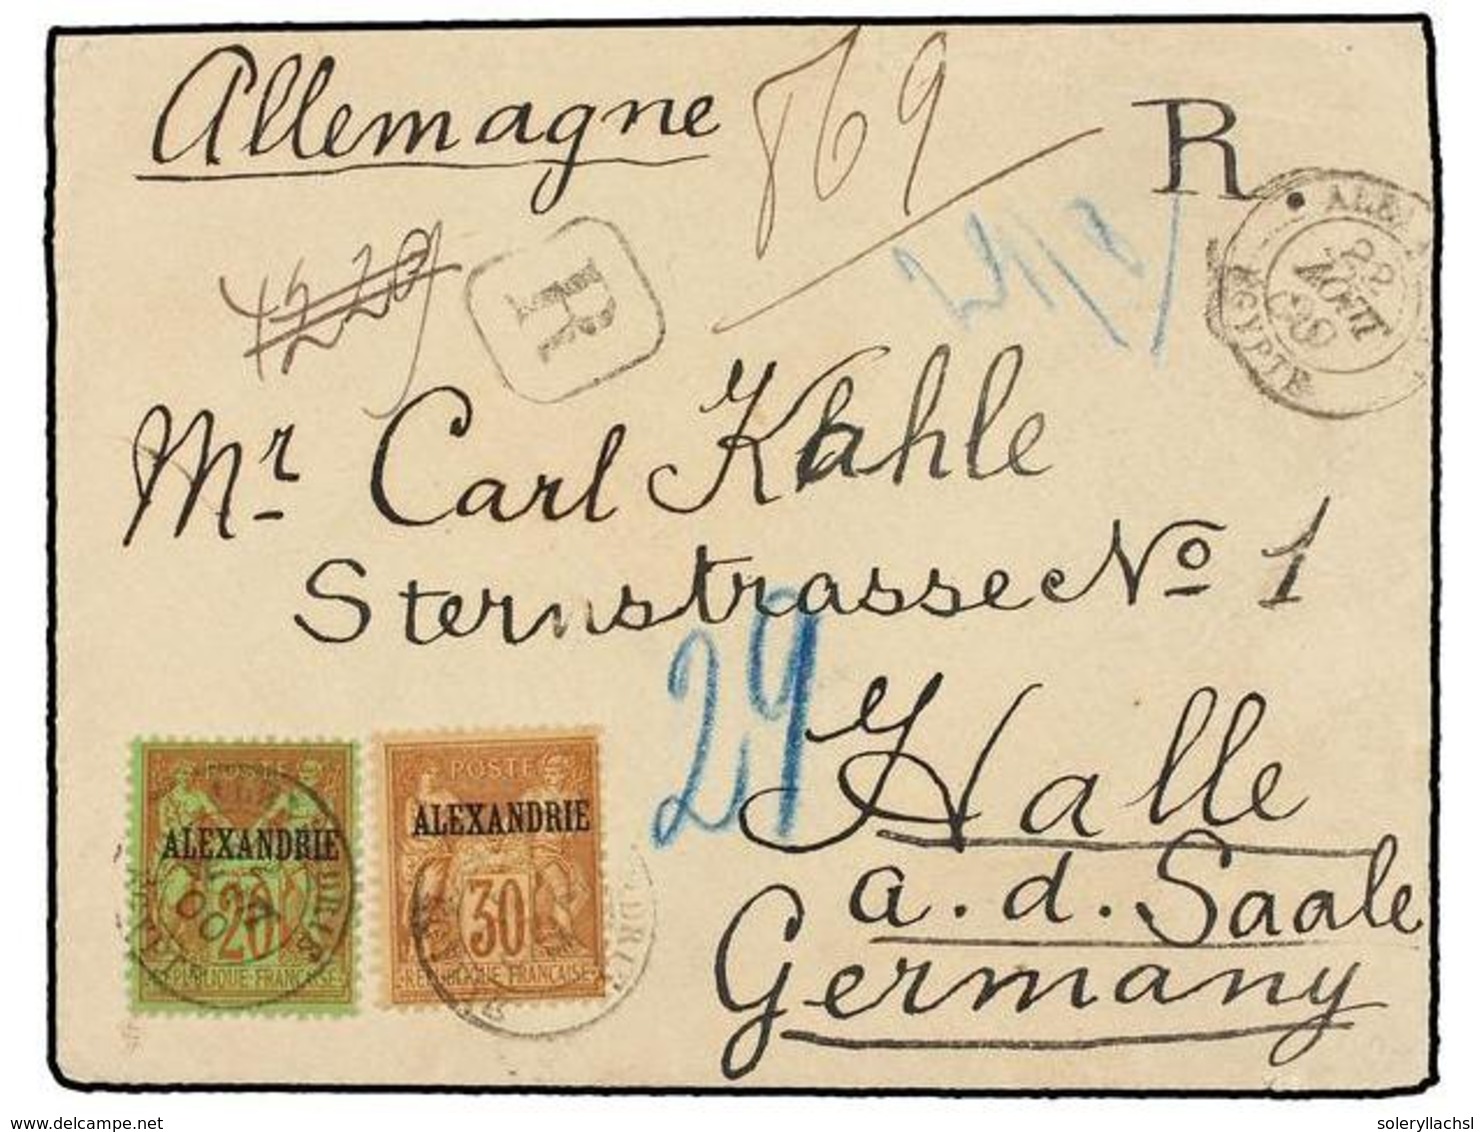 Allemagne
869
R
R
ALEX
22
AOUT
00
EGYPTE
Mr. Carl Kahle
Sternstrasse No 1
29
Halle
a. d. Saale
Germany
POSTE
ALEXANDRIE
20
REPUBLIQUE FRANÇAISE
POSTE
ALEXANDRIE
30
REPUBLIQUE FRANÇAISE
www.delcampe.net
soleryllachsl